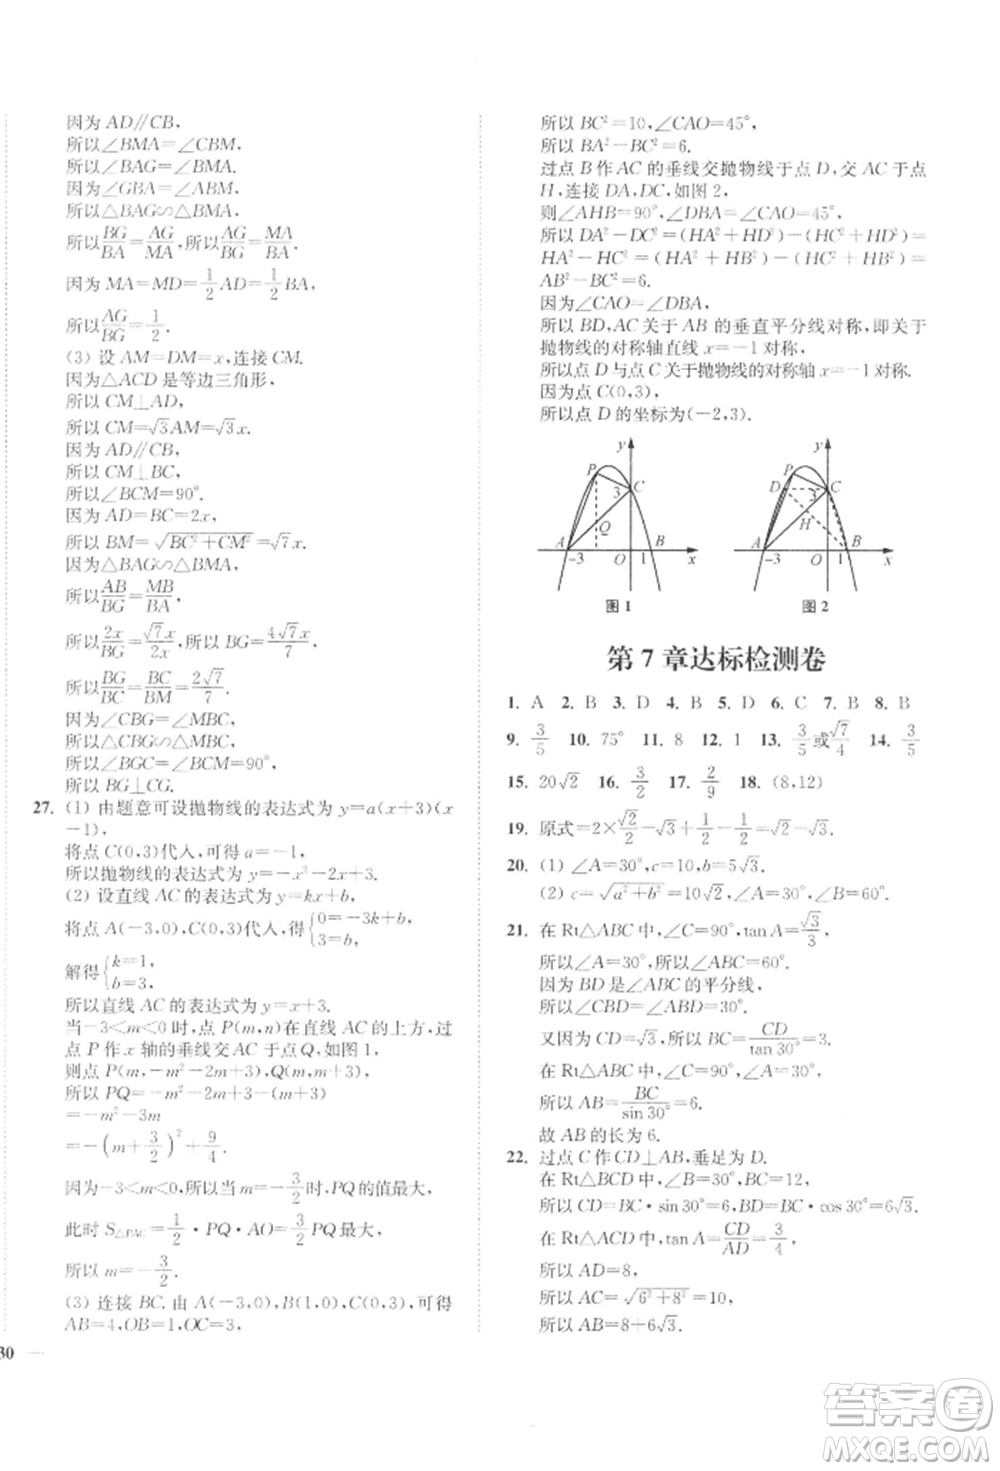 因为 AD∥CB,
所以∠BMA=∠CBM,
所以∠BAG=∠ABM.
因为∠GBA=∠ABM,
所以△BAG∽△BMA,
所以 BG/BA=AG/MA, 所以 AG/BG=MA/BA.
因为 MA=MD=1/2 AD=1/2 BA,
所以 AG/BG=1/2.
(3) 设 AM=DM=x,连接 CM.
因为△ACD 是等边三角形,
所以 CM⊥AD,
所以 CM=√3AM=√3x.
因为 AD∥CB,
所以 CM⊥BC,
所以∠BCM=90°.
因为 AD=BC=2x,
所以 BM=√(BC²+CM²)=√7x.
因为△BAG∽△BMA,
所以 AB/BG=MB/BA,
所以 2x/BG=√7x/2x,所以 BG=4√7x/7,
所以 BG/BC=BC/BM=2√7/7.
因为∠CBG=∠MBC,
所以△CBG∽△MBC,
所以∠BGC=∠BCM=90°,
所以 BG⊥CG.
27. (1) 由题意可设抛物线的表达式为 y=a(x+3)(x
-1),
将点 C(0,3)代入,可得 a=-1,
所以抛物线的表达式为 y=-x²-2x+3.
(2) 设直线 AC 的表达式为 y=kx+b,
将点 A(-3,0),C(0,3)代入,得 {0=-3k+b, 3=b,
解得 {k=1, b=3,
所以直线 AC 的表达式为 y=x+3.
当-3<m<0 时,点 P(m,n)在直线 AC 的上方,过
点 P 作 x 轴的垂线交AC 于点Q,如图 1,
则点 P(m,-m²-2m+3),Q(m,m+3),
所以 PQ=-m²-2m+3-(m+3)
=-m²-3m
=-(m+3/2)²+9/4.
因为-3<m<0,所以当 m=-3/2时,PQ的值最大,
此时 S△PAC=1/2·PQ·AO=3/2 PQ 最大,
所以 m=-3/2.
(3) 连接 BC. 由 A(-3,0),B(1,0),C(0,3),可得
AB=4,OB=1,OC=3,
30
所以 BC²=10,∠CAO=45°,
所以 BA²-BC²=6.
过点 B 作 AC 的垂线交抛物线于点 D,交 AC 于点
H,连接 DA,DC,如图 2,
则∠AHB=90°,∠DBA=∠CAO=45°,
所以 DA²-DC²=(HA²+HD²)-(HC²+HD²)=
HA²-HC²=(HA²+HB²)-(HC²+HB²)=
AB²-BC²=6.
因为∠CAO=∠DBA,
所以 BD,AC 关于 AB 的垂直平分线对称,即关于
抛物线的对称轴直线 x=-1 对称,
所以点 D 与点 C 关于抛物线的对称轴对称.
因为点 C(0,3),
所以点 D 的坐标为(-2,3).
y P 3 C Q A -3 O 1 B x
图 1
y P D 3 C H A -3 O 1 B x
图 2
第 7 章达标检测卷
1. A 2. B 3. D 4. B 5. D 6. C 7. B 8. B
9. 3/5 10. 75° 11. 8 12. 1 13. 3/5或√7/4 14. 3/5
15. 20√2 16. 3/2 17. 2/9 18. (8,12)
19. 原式=2×√2/2-√3+1/2-1/2=√2-√3.
20. (1) ∠A=30°,c=10,b=5√3.
(2) c=√(a²+b²)=10√2,∠A=30°,∠B=60°.
21. 在 Rt△ABC 中,∠C=90°,tan A=√3/3,
所以∠A=30°,所以∠ABC=60°.
因为 BD 是∠ABC 的平分线,
所以∠CBD=∠ABD=30°.
又因为 CD=√3,所以 BC=CD/tan 30°=3.
在 Rt△ABC 中,∠C=90°,∠A=30°,
所以 AB=BC/sin 30°=6.
故 AB 的长为 6.
22. 过点 C 作 CD⊥AB,垂足为 D.
在 Rt△BCD 中,∠B=30°,BC=12,
所以 CD=BC·sin30°=6,BD=BC·cos 30°=6√3.
在 Rt△ACD 中,tan A=CD/AD=3/4,
所以 AD=8,
所以 AC=√(6²+8²)=10,
所以 AB=8+6√3.
答案卷
MXQE.COM